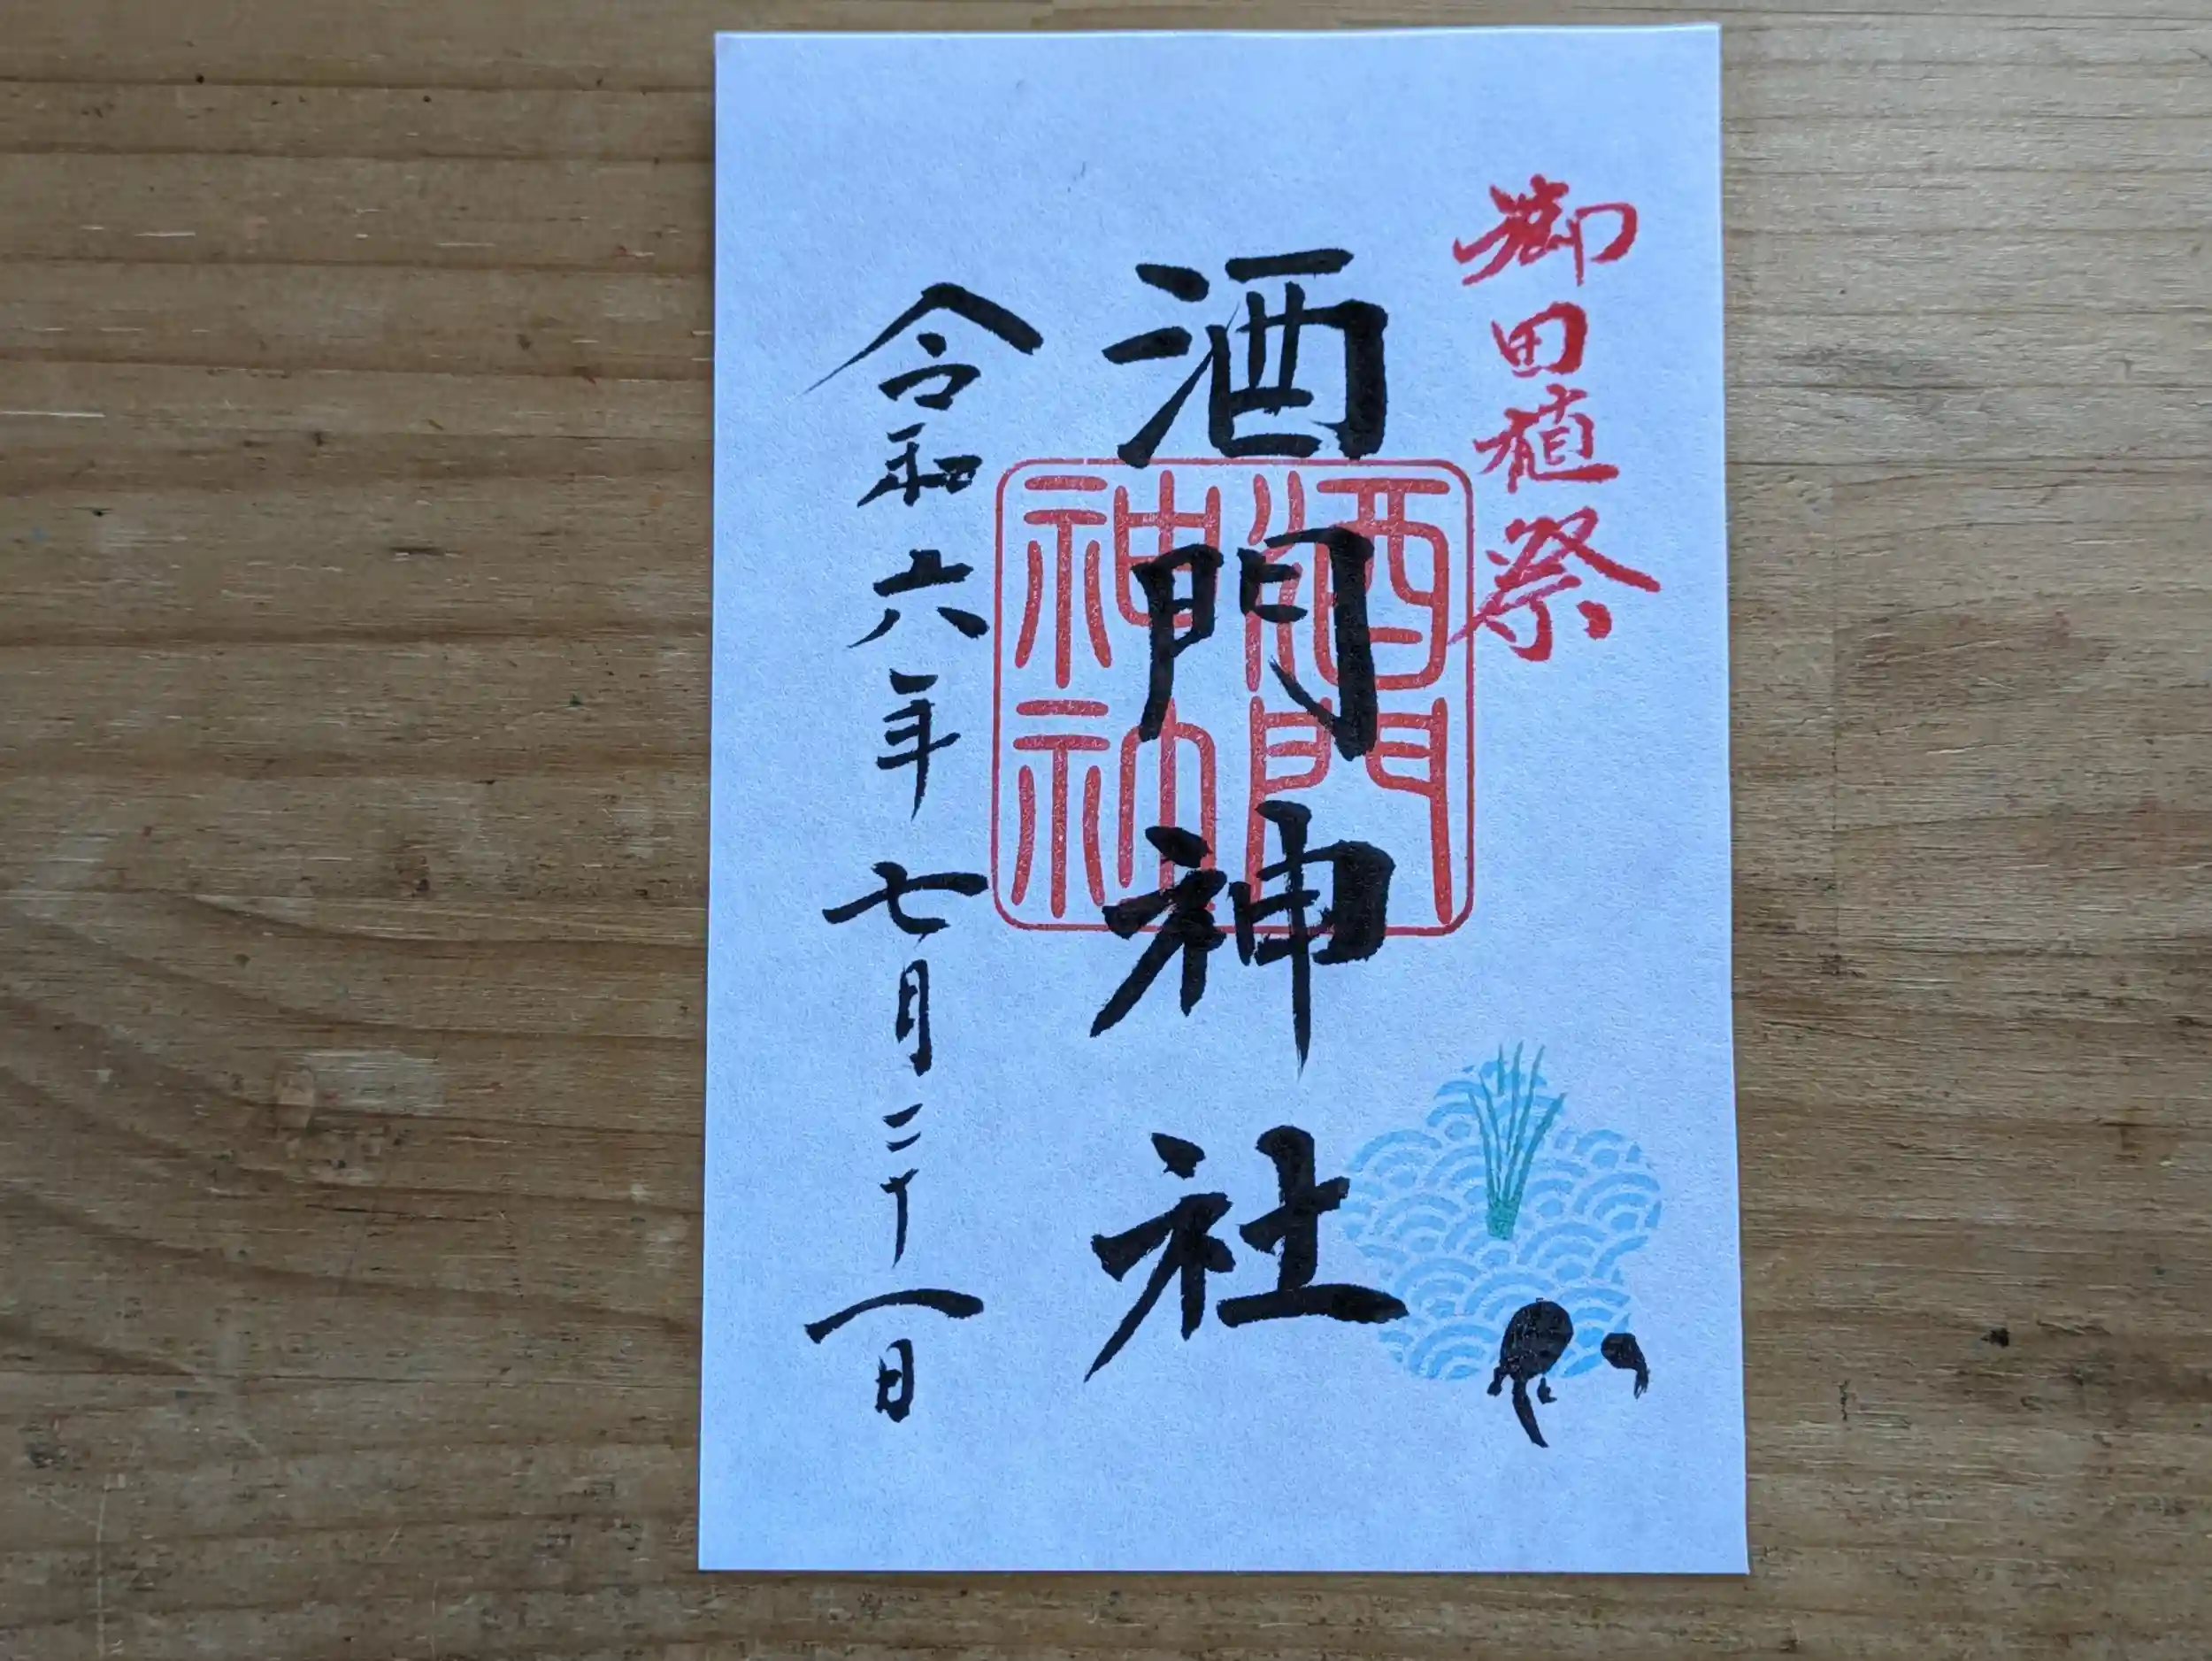 御田植祭
酒門神社
酒門
神社
令和六年七月二十一日